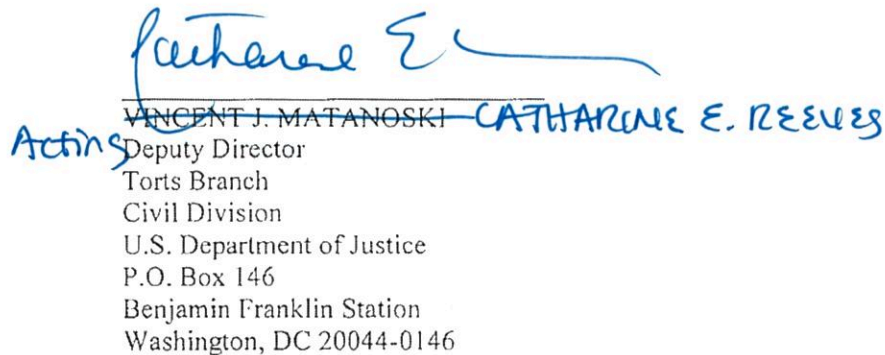 Catharine E
VINCENT J. MATANOSKI CATHARINE E. REEVES
Acting Deputy Director
Torts Branch
Civil Division
U.S. Department of Justice
P.O. Box 146
Benjamin Franklin Station
Washington, DC 20044-0146